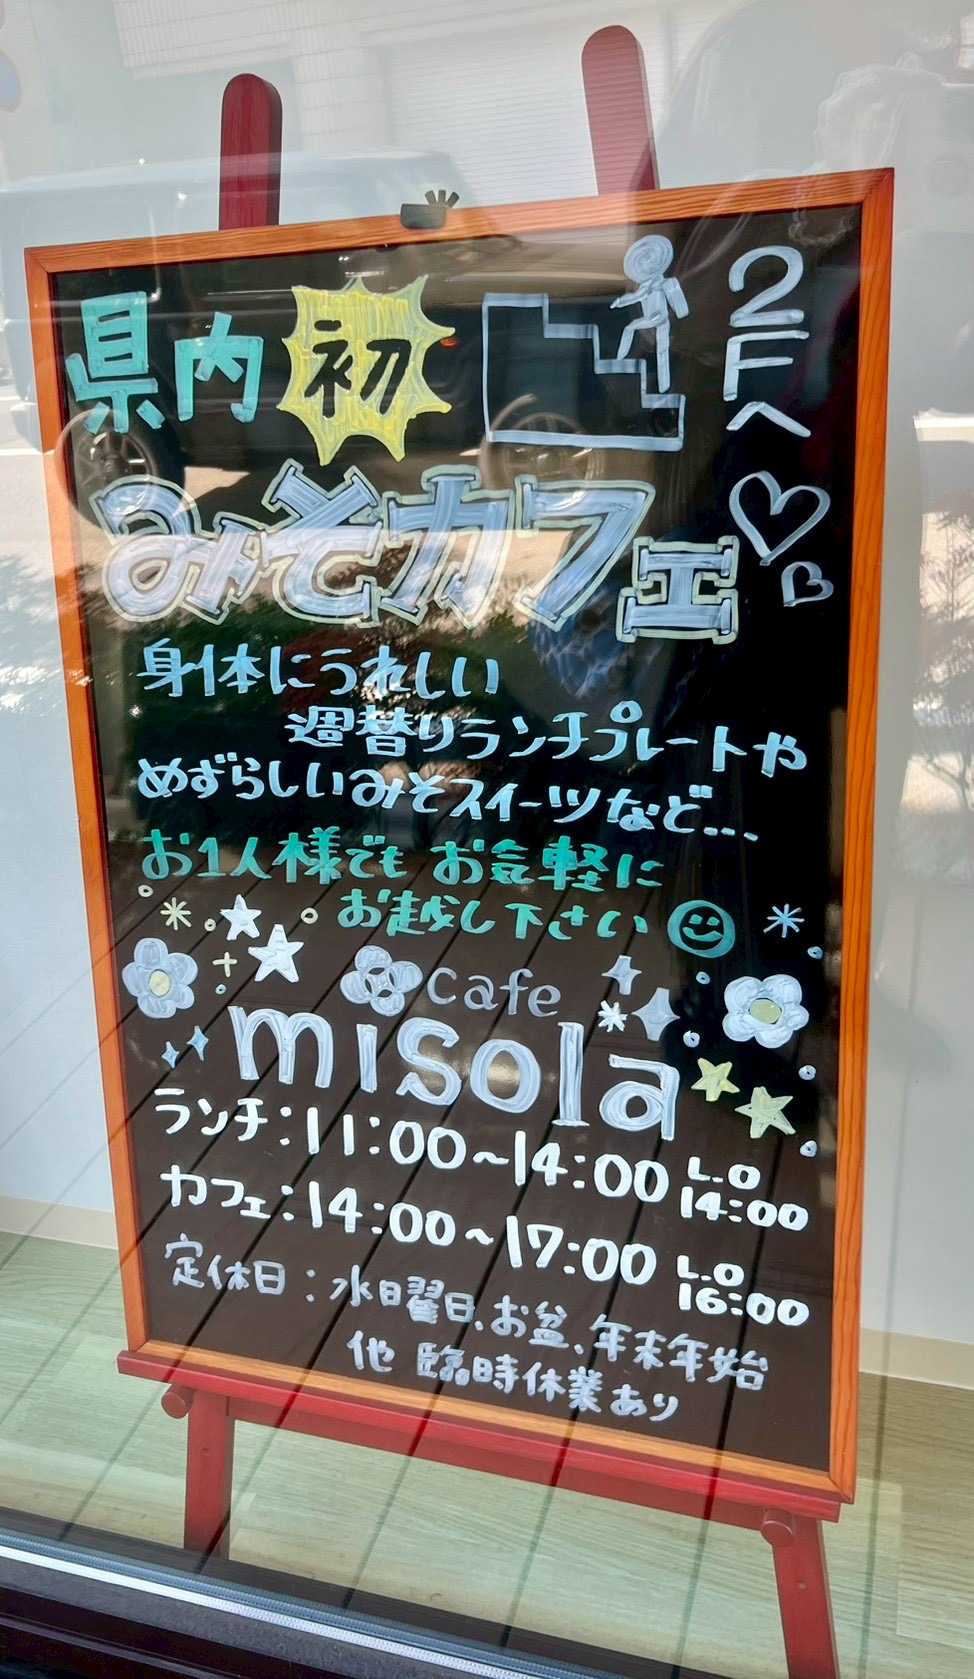 県内初
2Fへ
みそカフェ
身体にうれしい
週替りランチプレートや
めずらしいみそスイーツなど...
お1人様でも お気軽に
お越し下さい
cafe
misola
ランチ:11:00~14:00 L.O 14:00
カフェ:14:00~17:00 L.O 16:00
定休日:水曜日、お盆、年末年始
他 臨時休業あり